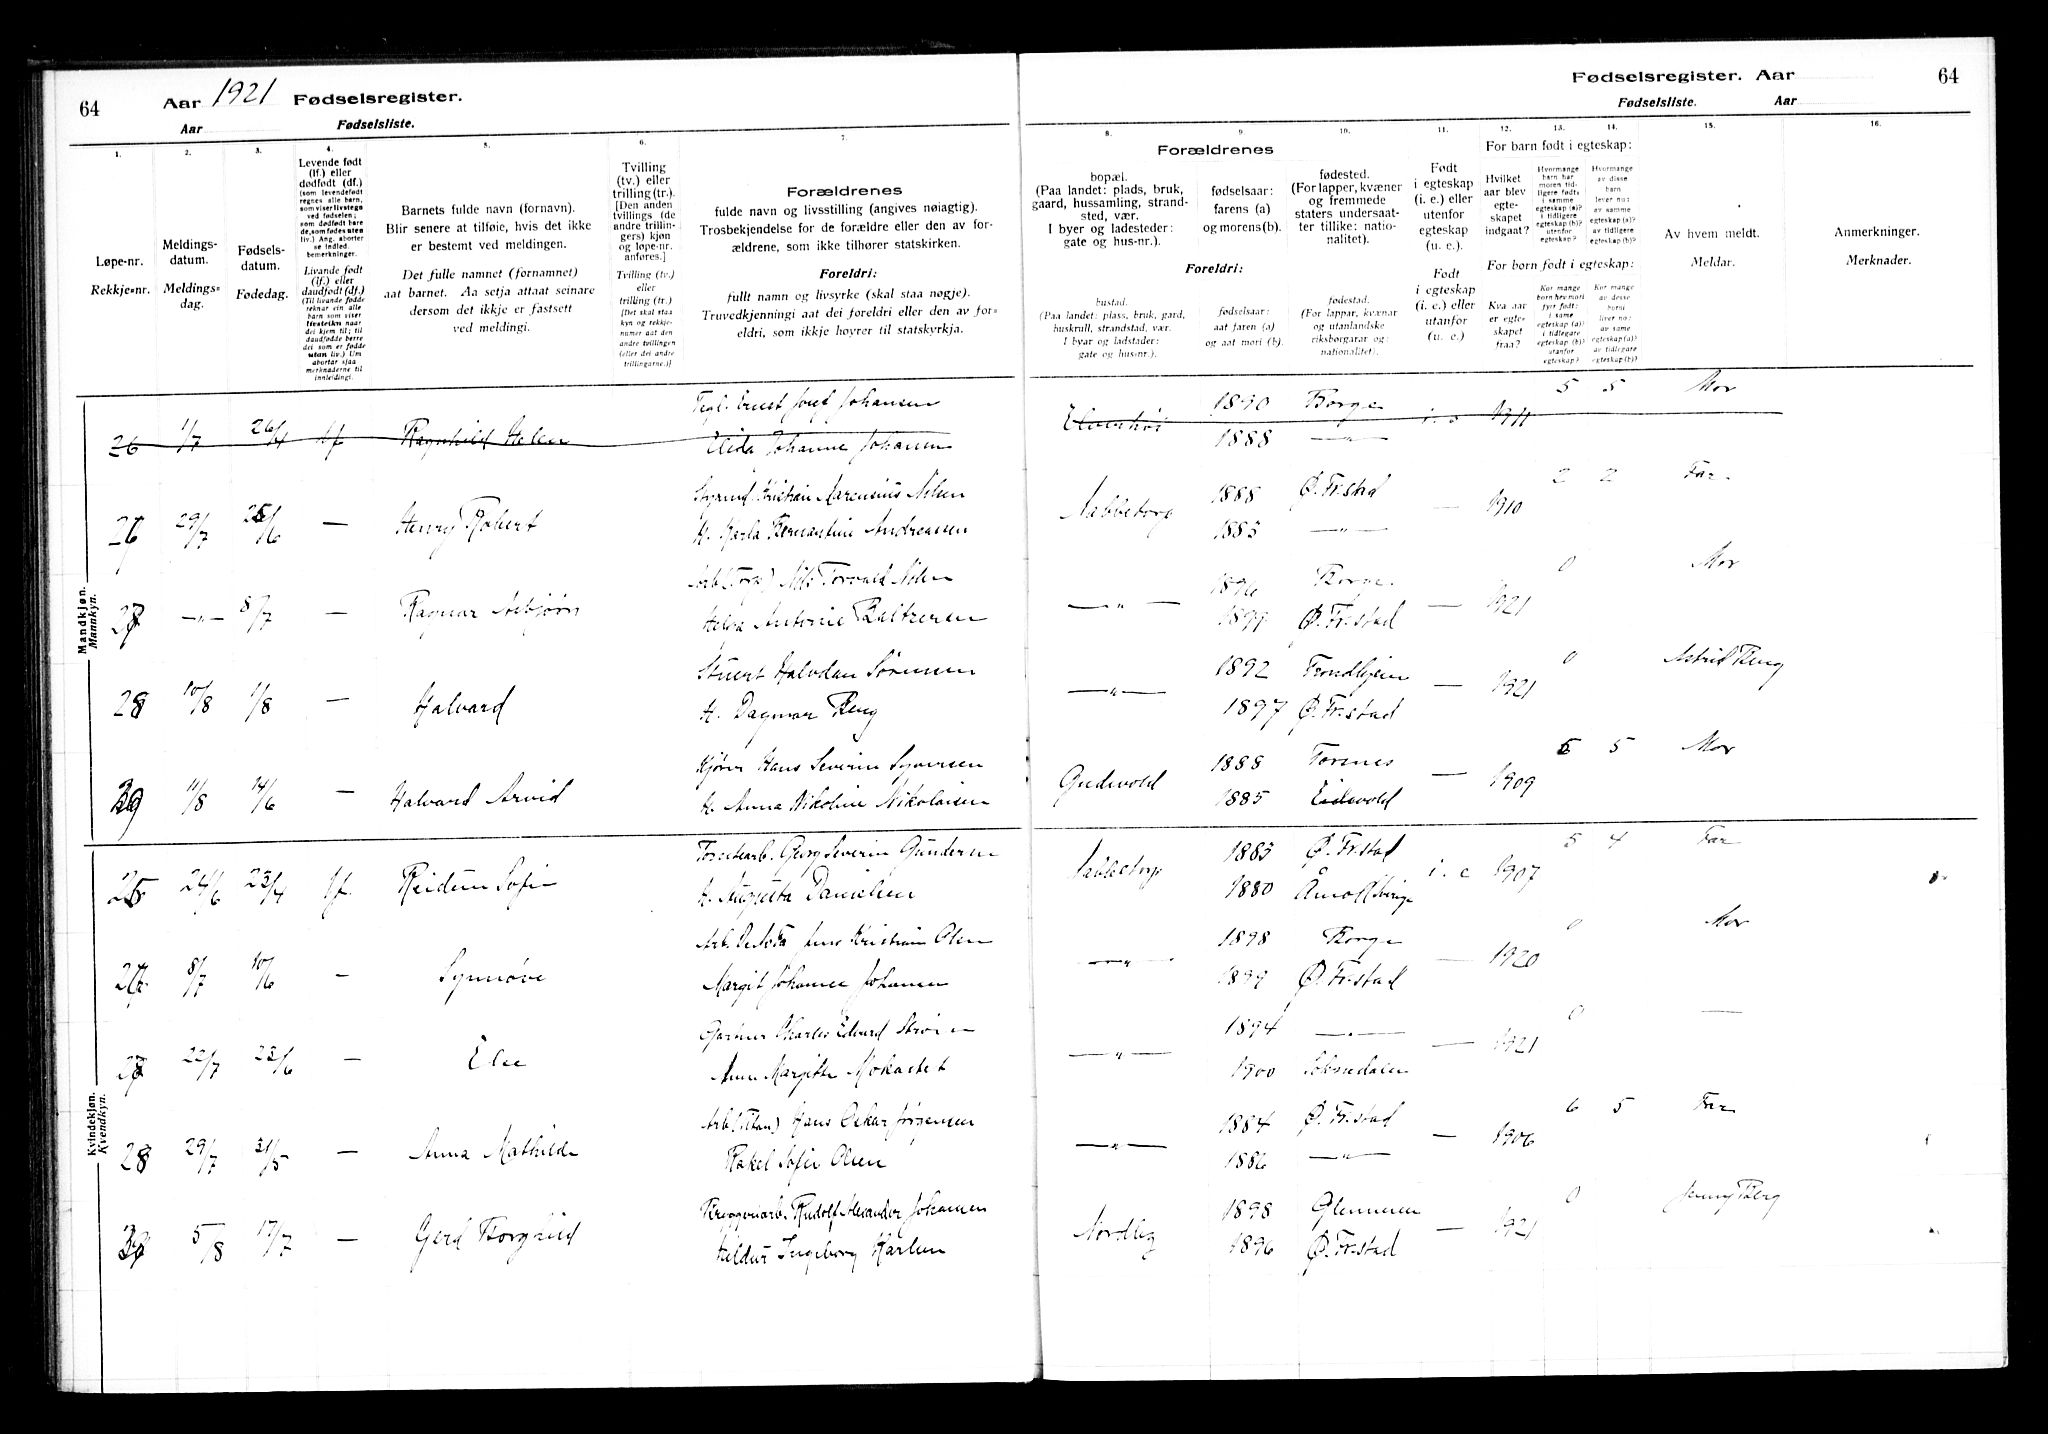 64 Aar 1921 Fødselsregister.
Aar Fødselsliste.
Fødselsregister. Aar 64
Fødselsliste. Aar
1. 2. 3. 4. 5. 6. 7.
Løpe-nr.
Rekkje-nr.
Meldings-
datum.
Meldings-
dag.
Fødsels-
datum.
Fødedag.
Levende født
(lf.) eller
dødfødt (df.)
(som levendefødt
regnes alle barn,
som viser livstegn
ved fødselen;
som dødfødt bare
de, som fødes uten
liv.) Ang. aborter
se indled.
bemerkninger.
Livande født
(lf.) eller
daudfødt (df.)
(Til livande fødde
reknar ein alle
barn som viser
livsteikn naar
dei kjem til; til
daudfødde berre
dei som er fødde
utan liv.) Um
abortar sjaa
merknaderne til
innleidingi.
Barnets fulde navn (fornavn).
Blir senere at tilføie, hvis det ikke
er bestemt ved meldingen.
Det fulle namnet (fornamnet)
aat barnet. Aa setja attaat seinare
dersom det ikkje er fastsett
ved meldingi.
Tvilling
(tv.) eller
trilling (tr.).
[Den anden
tvillings (de
andre trillin-
gers) kjøn
og løpe-nr.
anføres.]
Tvilling (tv.)
eller
trilling (tr.)
[Det skal staa
kyn og rekkje-
numer aat den
andre tvillingen
(eller dei andre
trillingarne.)]
Forældrenes
fulde navn og livsstilling (angives nøiagtig).
Trosbekjendelse for de forældre eller den av for-
ældrene, som ikke tilhører statskirken.
Foreldri:
fullt namn og livsyrke (skal staa nøgje).
Truvedkjenningi aat dei foreldri eller den av for-
eldri, som ikkje høyrer til statskyrkja.
8. 9. 10. 11. 12. 13. 14. 15. 16.
Forældrenes
bopæl.
(Paa landet: plads, bruk,
gaard, hussamling, strand-
sted, vær.
I byer og ladesteder:
gate og hus-nr.).
fødselsaar:
farens (a)
og morens (b).
fødested.
(For lapper, kvæner
og fremmede
staters undersaat-
ter tillike: natio-
nalitet).
Foreldri:
bustad.
(Paa landet: plass, bruk, gard,
huskrull, strandstad, vær.
I byar og ladstader:
gate og hus-nr.).
fødselsaar:
aat faren (a)
og aat mori (b).
fødestad.
(For lappar, kvænar
og utanlandske
riksborgarar og:
nationalitet).
Født
i egteskap
(i. e.) eller
utenfor
egteskap
(u. e.).
Født
i egteskap
(i. e.) eller
utanfor
(u. e.)
For barn født i egteskap:
Hvilket
aar blev
egte-
skapet
indgaat?
Hvormange
barn har
moren tid-
ligere født:
i samme
egteskap (a)?
i tidligere
egteskap (b)?
utenfor
egteskap?
Hvormange
av disse
barn
lever nu:
av samme
egteskap (a)?
av tidligere
egteskap (b)?
For born født i egteskap:
Kva aar
er egte-
skapet
fraa?
Kor mange
born hev mori
fyrr født:
i same
egteskap (a)?
i tidlegare
egteskap (b)?
utanfor
egteskap?
Kor mange
av desse
borni
liver no:
av same
egteskap (a)?
av tidlegare
egteskap (b)?
Av hvem meldt.
Meldar.
Anmerkninger.
Merknader.
Mandkjøn.
Mannkyn.
Ernst Josef Johansen 1890 Borge 5 5 Mor
26 1/7 26/4 lf Ragnhild Helen Elida Johanne Johansen 1888 — " — i. e 1911
Kristian Marensius Nilsen 1888 Ø. Fr.stad 2 2 Far
29/7 /6 — Henry Robert H. Karla Andreassen Nabbetorp 1883 — " — — 1910
Arb (Torp) Nils Torvald Nilsen 1896 Borge 0 Mor
— " — 8/7 — Ragnar Asbjørn Antonie — " — Ø. Fr.stad — 1921
Stuert Halvdan Sørensen 1892 Trondhjem 0 Astrid Berg
28 10/8 1/8 — Halvard H. Dagmar Berg — " — 1897 Ø. Fr.stad — 1921
Hans Severin Syversen 1888 5 5 Mor
11/8 14/6 — Halvard Arvid H. Anna Nikoline Nikolaisen Gudevold 1885 Eidsvold — 1909
Kvindekjøn.
Kvendkyn.
Georg Severin Gundersen 1883 Ø. Fr.stad 5 4 Far
25 24/6 23/4 lf. Reidun Sofie H. Augusta Danielsen Nabbetorp 1880 Åmot Sverige i. e 1907
Arb. Jens Kristian Olsen 1898 Borge 0 Mor
8/7 10/6 — Synnøve Margit Johanne Johansen — " — 1899 Ø. Fr.stad — 1920
Charles Edvard 1894 — " — 0 —
22/7 23/6 — Else Anna Margithe Mokastet — " — 1900 Soknedalen — 1921
Arb (Titan) Hans Oskar Jørgensen 1884 Ø. Fr.stad 6 5 Far
28 29/7 31/5 — Anna Mathilde Rakel Sofie Olsen — " — 1886 — " — — 1906
Bryggeriarb. Rudolf Alexander Johansen 1898 Glemmen 0 Jenny Berg
5/8 17/7 — Gerd Borghild Hildur Ingeborg Karlsen Nordby 1896 Ø. Fr.stad — 1921